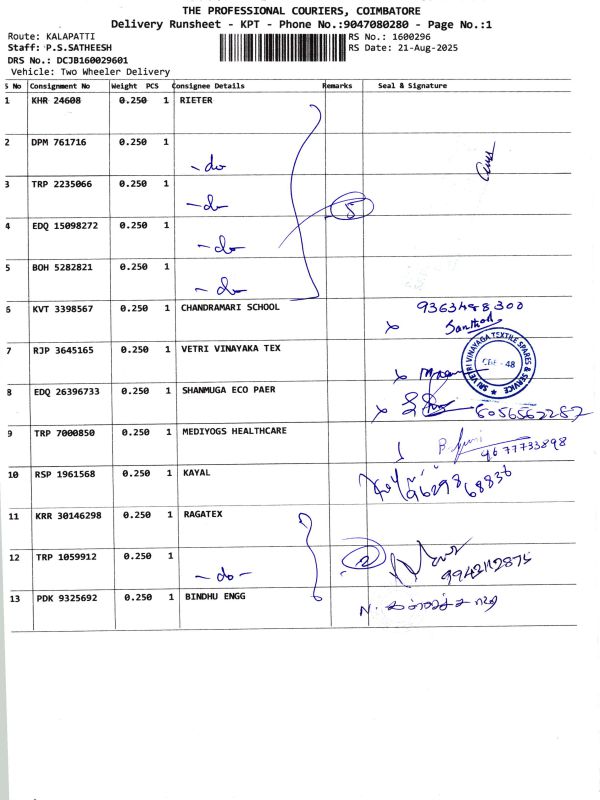 THE PROFESSIONAL COURIERS, COIMBATORE
Delivery Runsheet - KPT - Phone No.:9047080280 - Page No.:1
Route: KALAPATTI
RS No.: 1600296
Staff: P.S.SATHEESH
RS Date: 21-Aug-2025
DRS No.: DCJB160029601
Vehicle: Two Wheeler Delivery
S No Consignment No Weight PCS Consignee Details Remarks Seal & Signature
1 KHR 24608 0.250 1 RIETER
2 DPM 761716 0.250 1
- do
3 TRP 2235066 0.250 1
- do -
5
4 EDQ 15098272 0.250 1
- do -
5 BOH 5282821 0.250 1
- do -
6 KVT 3398567 0.250 1 CHANDRAMARI SCHOOL 9363488300
7 RJP 3645165 0.250 1 VETRI VINAYAKA TEX
SRI VETRI VINAYAGA TEXTILE SPARES & SERVICE
CBE - 48
8 EDQ 26396733 0.250 1 SHANMUGA ECO PAER
8056562287
9 TRP 7000850 0.250 1 MEDIYOGS HEALTHCARE
9677733898
10 RSP 1961568 0.250 1 KAYAL
9629868836
11 KRR 30146298 0.250 1 RAGATEX
12 TRP 1059912 0.250 1
- do - 2
9942112875
13 PDK 9325692 0.250 1 BINDHU ENGG